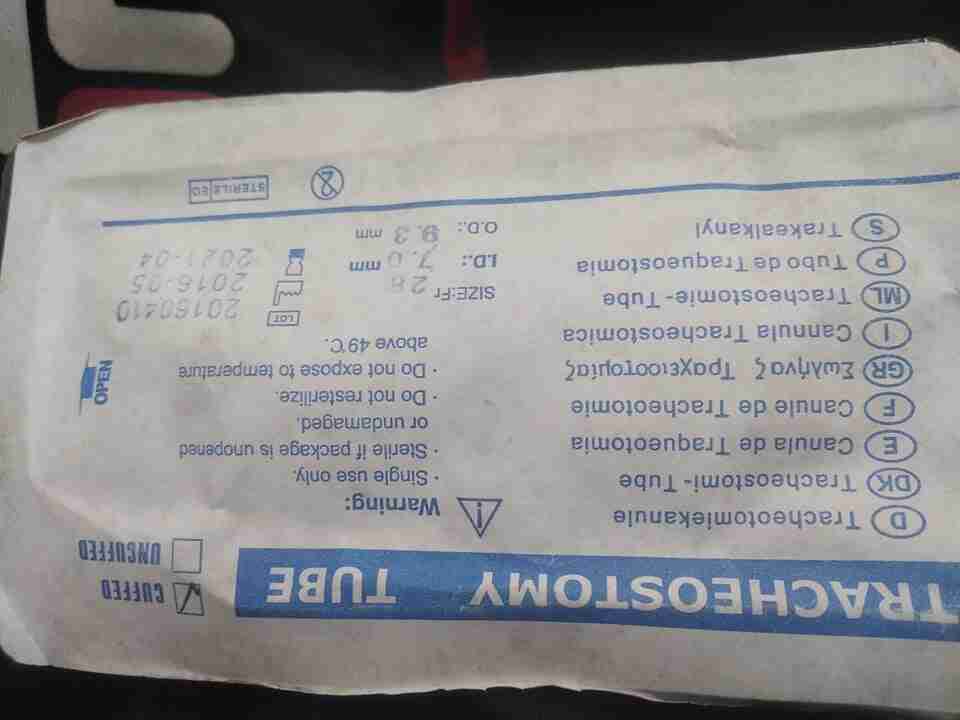 TRACHEOSTOMY TUBE
CUFFED
UNSUFFED
D Tracheotomiekanule
DK Tracheostomi-Tube
E Canula de Traqueotomia
F Canule de Tracheotomie
GR Σωλήναζ Τραχειοστομίαζ
I Cannula Tracheostomica
ML Tracheostomie-Tube
P Tubo de Traqueostomia
S Trakealkanyl
Warning:
· Single use only.
· Sterile if package is unopened
or undamaged.
· Do not resterilize.
· Do not expose to temperature
above 49℃.
OPEN
SIZE:Fr 28
I.D.: 7.0 mm
O.D.: 9.3 mm
LOT 20160410
2016-05
2021-04
2
STERILE EO